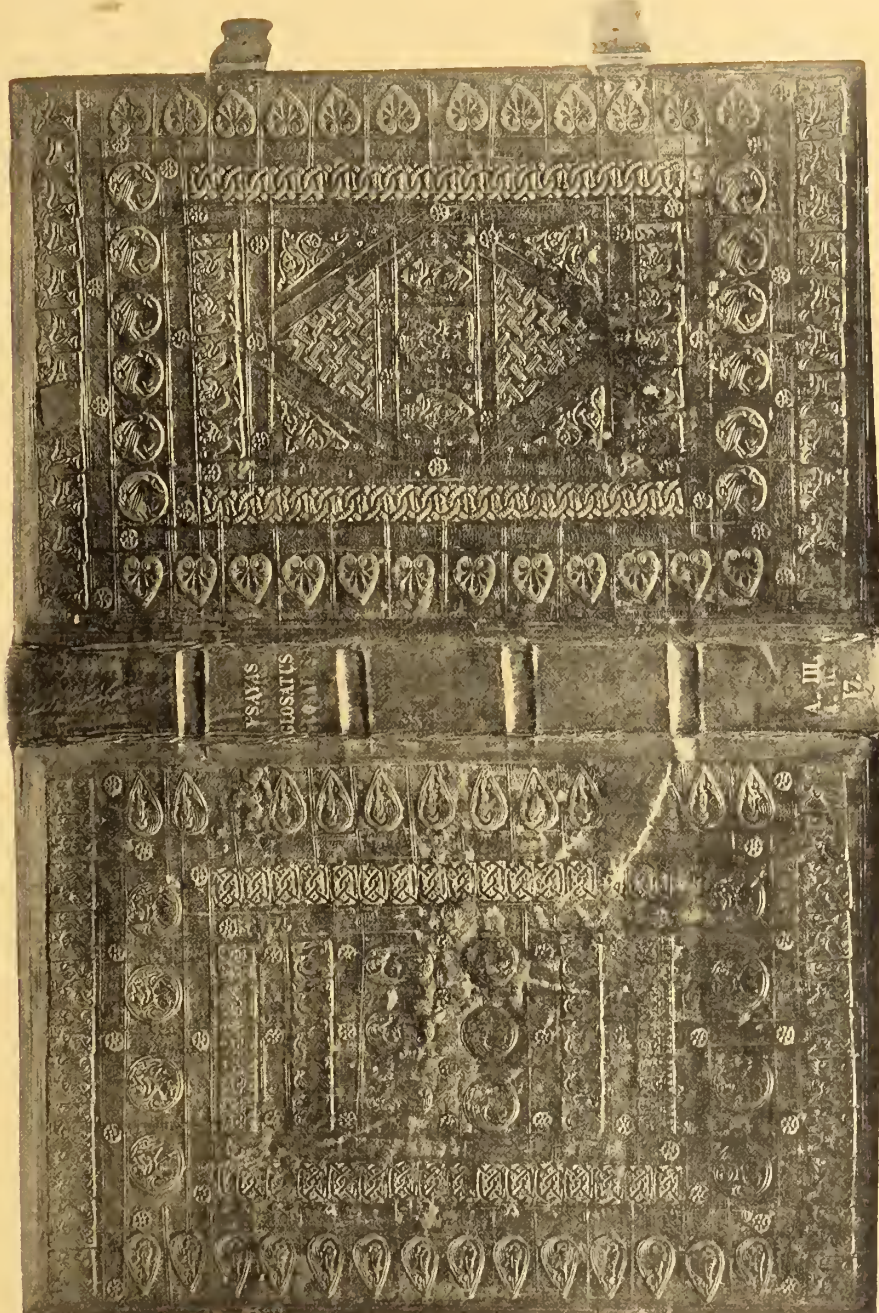 YSAYAS
GLOSATUS
A. III.
17.